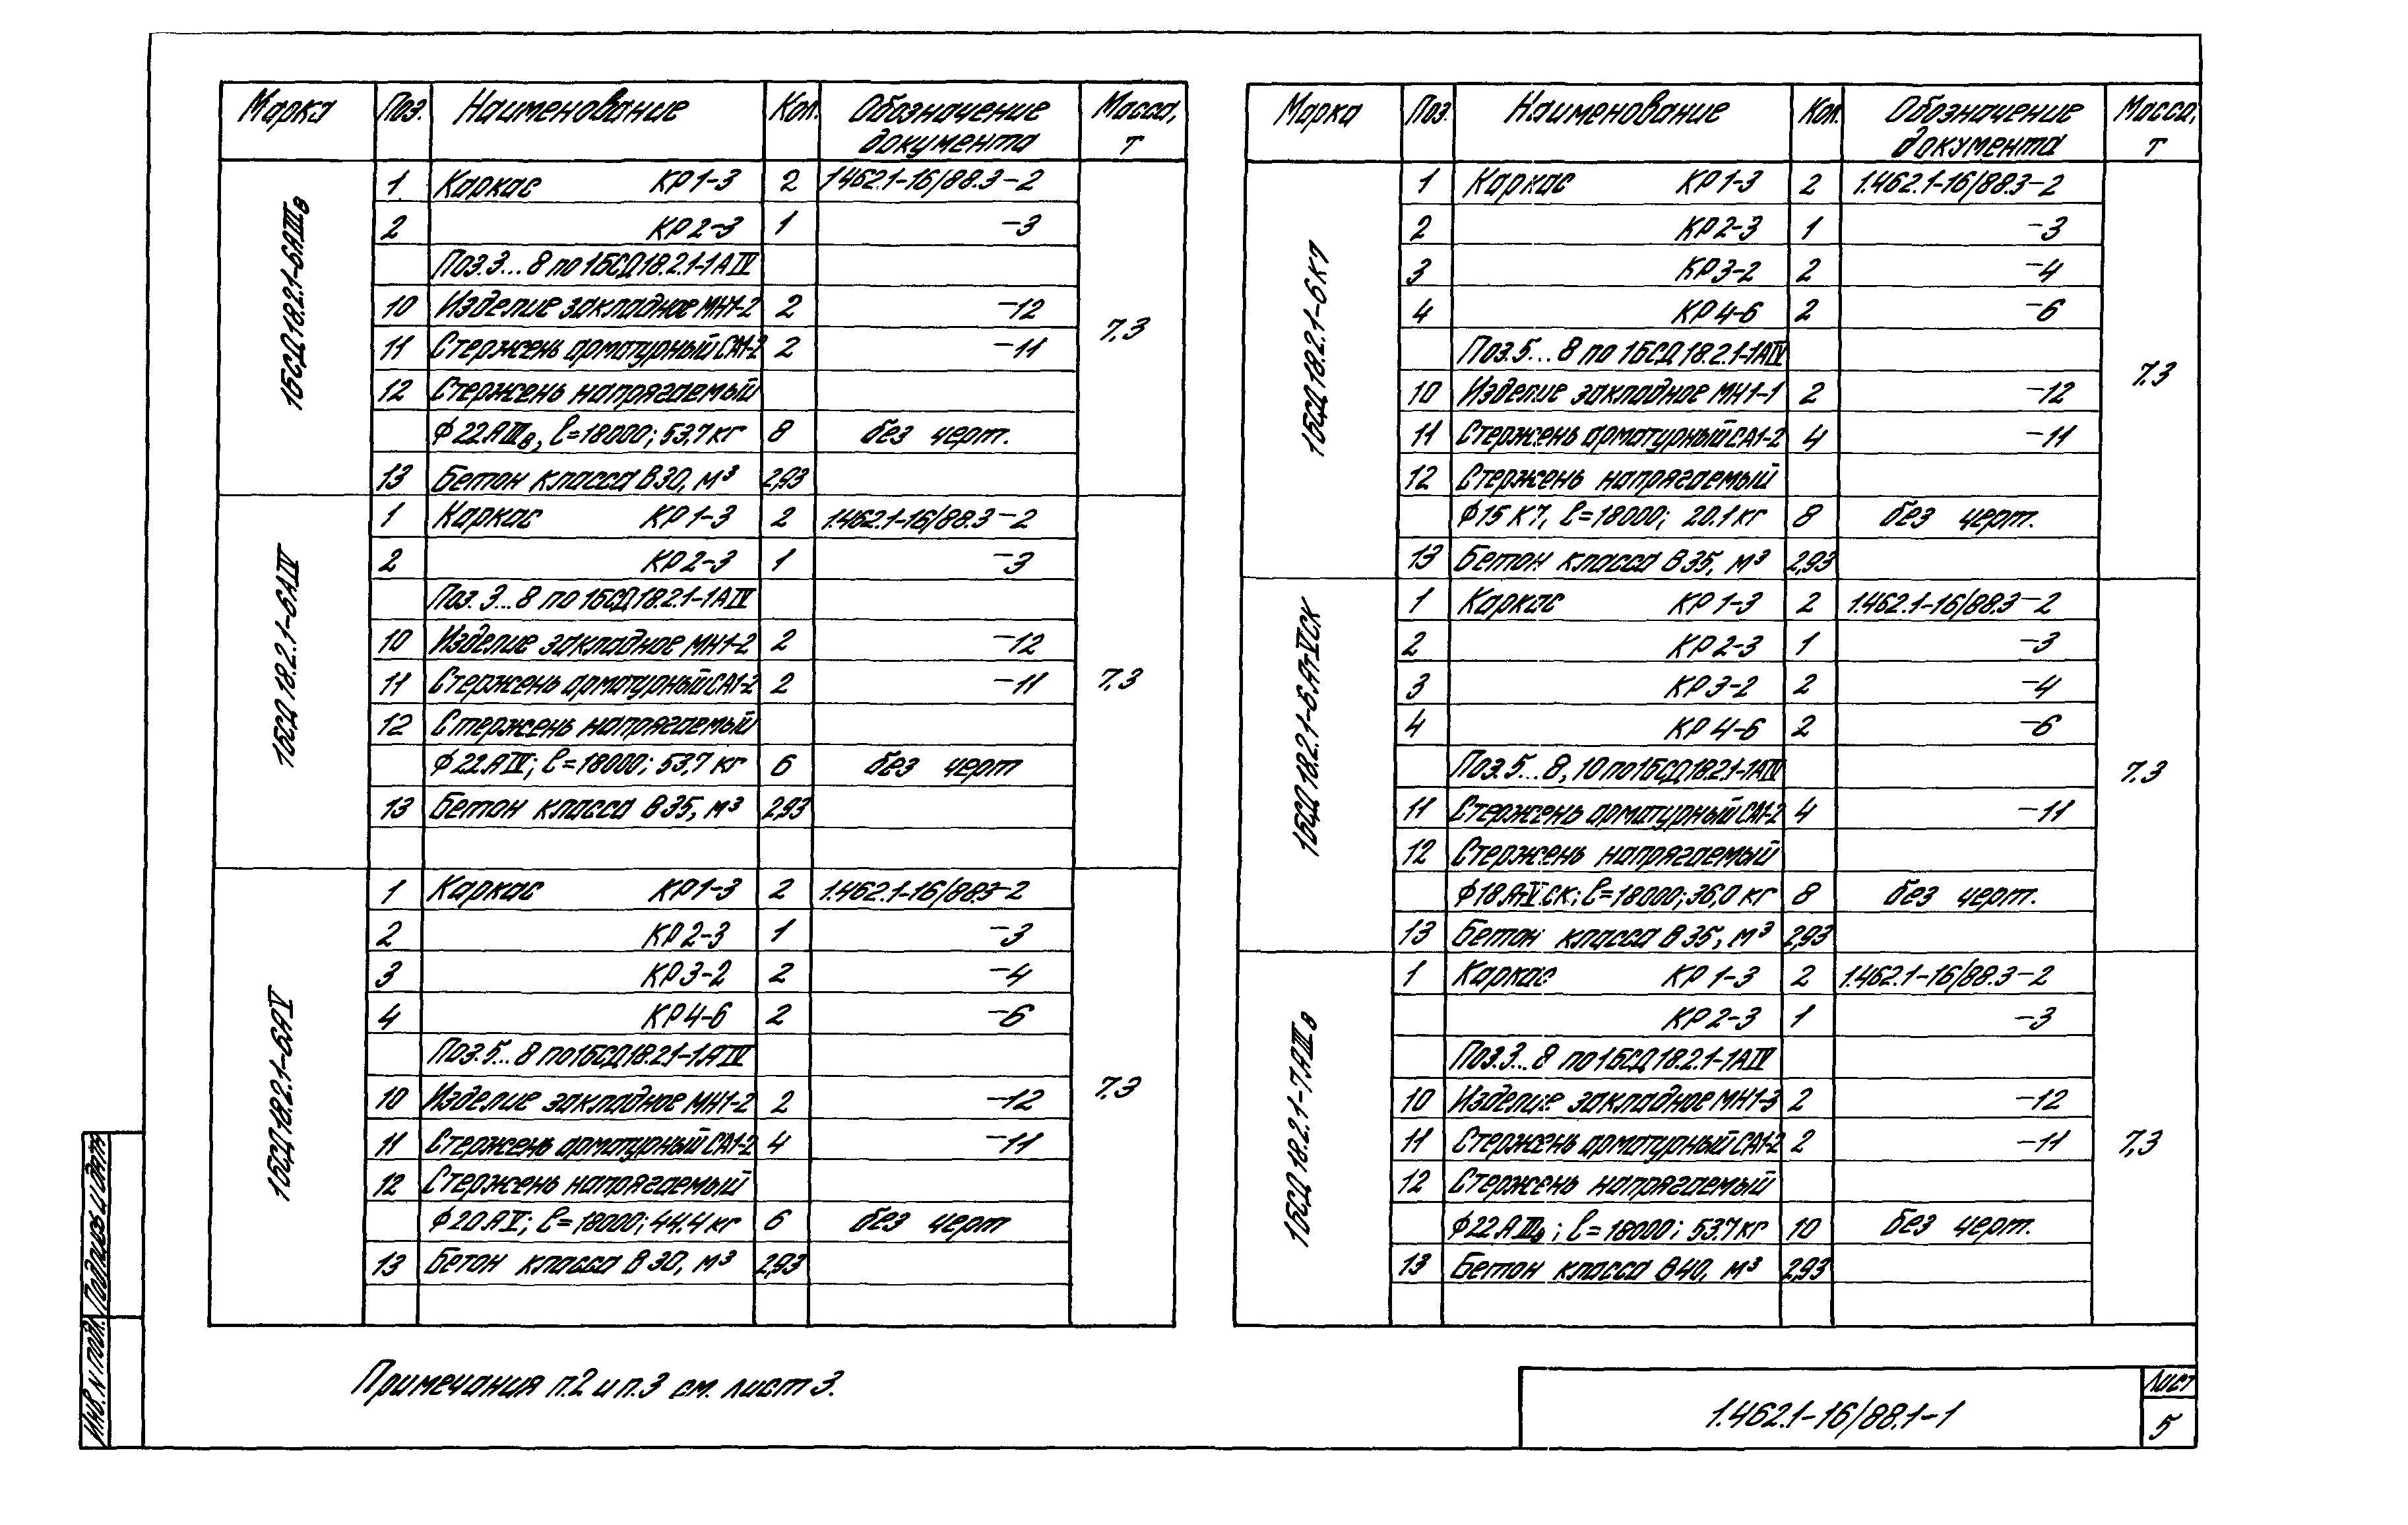 Марка Поз. Наименование Кол. Обозначение документа Масса, т
1БСД18.2.1-6АIIIв
1 Каркас КР1-3 2 1.462.1-16/88.3-2
2 КР2-3 1 -3
Поз.3...8 по 1БСД18.2.1-1АIV
10 Изделие закладное МН1-2 2 -12
11 Стержень арматурный СА1-2 2 -11
12 Стержень напрягаемый
ф22АIIIв, ℓ=18000; 53,7кг 8 без черт.
13 Бетон класса В30, м³ 2,93
7,3
1БСД18.2.1-6АIV
1 Каркас КР1-3 2 1.462.1-16/88.3-2
2 КР2-3 1 -3
Поз.3...8 по 1БСД18.2.1-1АIV
10 Изделие закладное МН1-2 2 -12
11 Стержень арматурный СА1-2 2 -11
12 Стержень напрягаемый
ф22АIV; ℓ=18000; 53,7 кг 6 без черт
13 Бетон класса В35, м³ 2,93
7,3
1БСД18.2.1-6АV
1 Каркас КР1-3 2 1.462.1-16/88.3-2
2 КР2-3 1 -3
3 КР3-2 2 -4
4 КР4-6 2 -6
Поз.5...8 по 1БСД18.2.1-1АIV
10 Изделие закладное МН1-2 2 -12
11 Стержень арматурный СА1-2 4 -11
12 Стержень напрягаемый
ф20АV; ℓ=18000; 44,4кг 6 без черт
13 Бетон класса В30, м³ 2,93
7,3
Марка Поз. Наименование Кол. Обозначение документа Масса, т
1БСД18.2.1-6К7
1 Каркас КР1-3 2 1.462.1-16/88.3-2
2 КР2-3 1 -3
3 КР3-2 2 -4
4 КР4-6 2 -6
Поз.5...8 по 1БСД18.2.1-1АIV
10 Изделие закладное МН1-1 2 -12
11 Стержень арматурный СА1-2 4 -11
12 Стержень напрягаемый
ф15К7, ℓ=18000; 20.1кг 8 без черт.
13 Бетон класса В35, м³ 2,93
7,3
1БСД18.2.1-6Ат-VСК
1 Каркас КР1-3 2 1.462.1-16/88.3-2
2 КР2-3 1 -3
3 КР3-2 2 -4
4 КР4-6 2 -6
Поз.5...8, 10 по 1БСД18.2.1-1АIV
11 Стержень арматурный СА1-2 4 -11
12 Стержень напрягаемый
ф18Ат-V.СК; ℓ=18000; 36,0 кг 8 без черт.
13 Бетон класса В35, м³ 2,93
7,3
1БСД18.2.1-7АIIIв
1 Каркас КР1-3 2 1.462.1-16/88.3-2
КР2-3 1 -3
Поз.3...8 по 1БСД18.2.1-1АIV
10 Изделие закладное МН1-3 2 -12
11 Стержень арматурный СА1-2 2 -11
12 Стержень напрягаемый
ф22АIIIв; ℓ=18000; 53,7кг 10 без черт.
13 Бетон класса В40, м³ 2,93
7,3
Примечания п.2 и п.3 см. лист 3.
1.462.1-16/88.1-1
Лист
5
Инв. N подл.
Подпись и дата